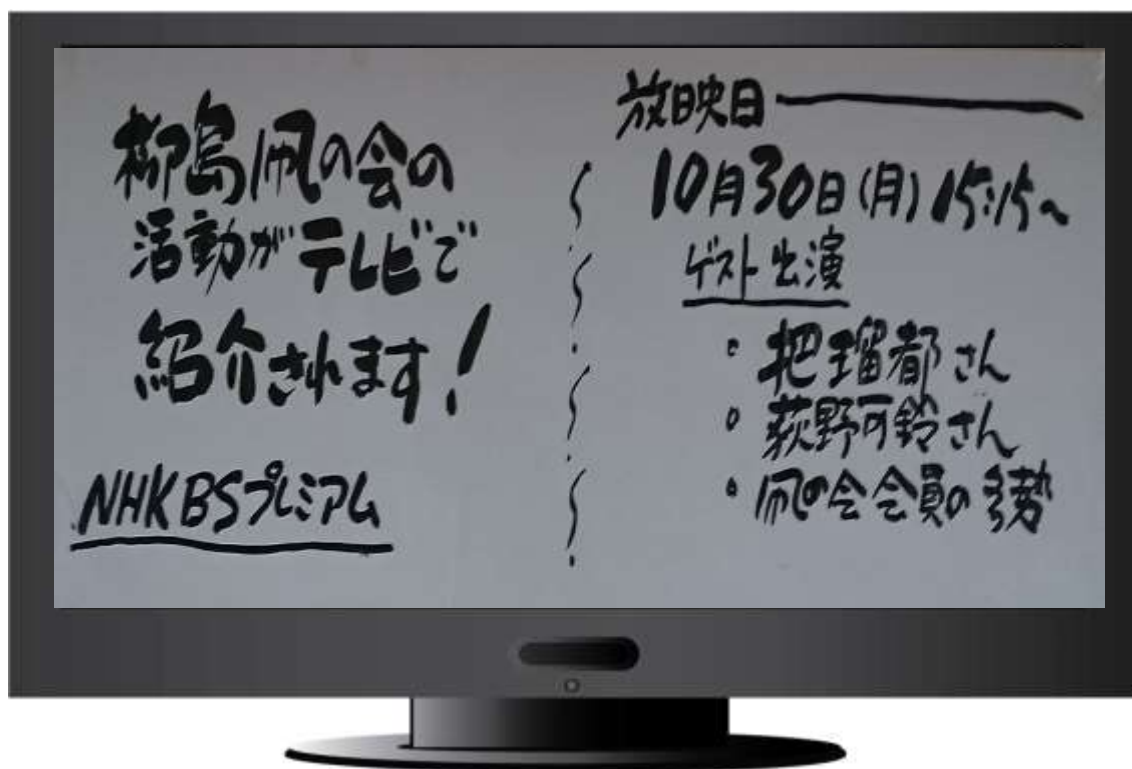 柳島凧の会の
活動がテレビで
紹介されます!
NHK BSプレミアム
放映日
10月30日(月) 15:15~
ゲスト出演
・把瑠都さん
・荻野可鈴さん
・凧の会会員の多勢